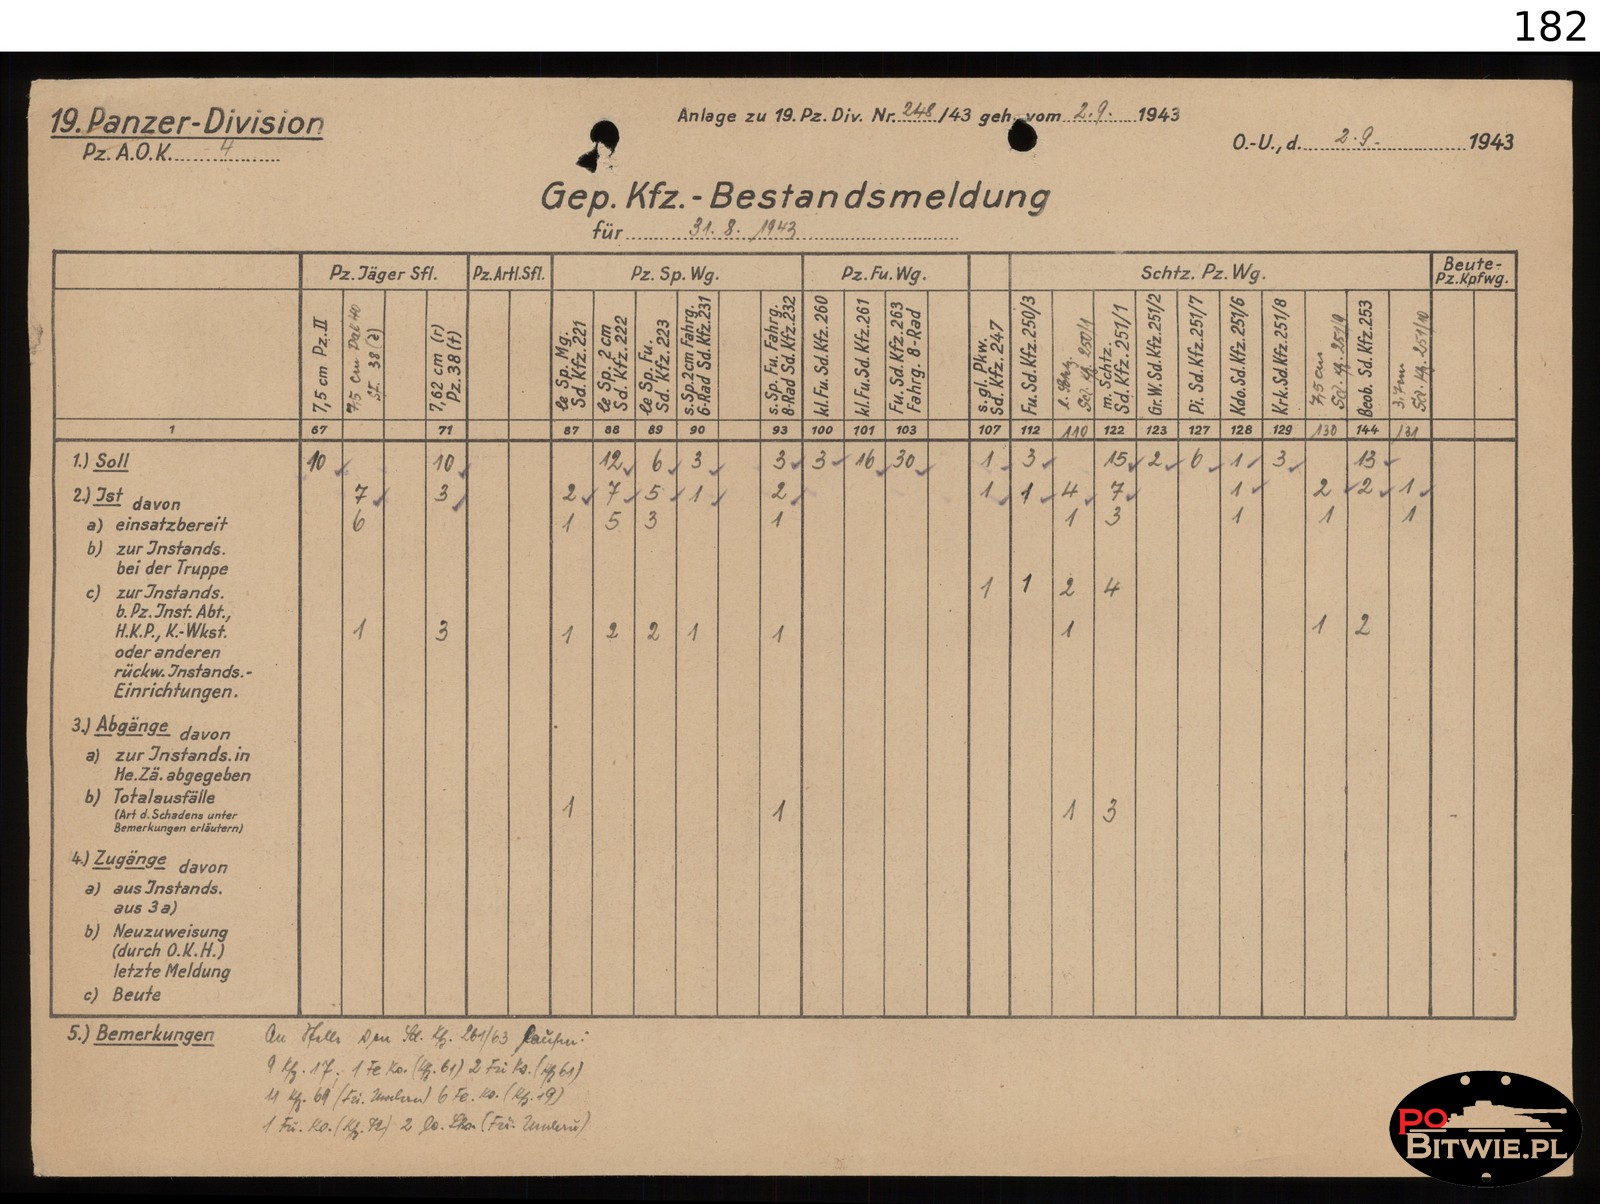 182
19. Panzer-Division
Anlage zu 19. Pz. Div. Nr. 248 /43 geh. vom 2.9. 1943
Pz. A.O.K. 4
O.-U., d. 2.9. 1943
Gep. Kfz.-Bestandsmeldung
für 31. 8. 1943
Pz. Jäger Sfl. Pz. Artl. Sfl. Pz. Sp. Wg. Pz. Fu. Wg. Schtz. Pz. Wg. Beute-Pz. Kpfwg.
7,5 cm Pz. II
7,5 cm Pak 40 Sf. 38 (t)
7,62 cm (r) Pz. 38 (t)
le Sp. Mg. Sd. Kfz. 221
le Sp. 2 cm Sd. Kfz. 222
le Sp. Fu. Sd. Kfz. 223
s. Sp. 2cm Fahrg. 6-Rad Sd. Kfz. 231
s. Sp. Fu. Fahrg. 8-Rad Sd. Kfz. 232
kl. Fu. Sd. Kfz. 260
kl. Fu. Sd. Kfz. 261
Fu. Sd. Kfz. 263 Fahrg. 8-Rad
s. gl. Pkw. Sd. Kfz. 247
Fu. Sd. Kfz. 250/3
250/1
m. Schtz. Sd. Kfz. 251/1
Gr. W. Sd. Kfz. 251/2
Pi. Sd. Kfz. 251/7
Kdo. Sd. Kfz. 251/6
Krk. Sd. Kfz. 251/8
7,5 cm Sd. Kfz. 251/9
Beob. Sd. Kfz. 253
3,7 cm Sd. Kfz. 251/10
1 67 71 87 88 89 90 93 100 101 103 107 112 110 122 123 127 128 129 130 144 131
1.) Soll 10 10 12 6 3 3 3 16 30 1 3 15 2 6 1 3 13
2.) Ist davon 7 3 2 7 5 1 2 1 1 4 7 1 2 2 1
a) einsatzbereit 6 1 5 3 1 1 3 1 1 1
b) zur Instands.
bei der Truppe
c) zur Instands. 1 1 2 4
b. Pz. Inst. Abt.,
H.K.P., K.-Wkst. 1 3 1 2 2 1 1 1 1 2
oder anderen
rückw. Instands.-
Einrichtungen.
3.) Abgänge davon
a) zur Instands. in
He. Zä. abgegeben
b) Totalausfälle 1 1 1 3
(Art d. Schadens unter
Bemerkungen erläutern)
4.) Zugänge davon
a) aus Instands.
aus 3 a)
b) Neuzuweisung
(durch O.K.H.)
letzte Meldung
c) Beute
5.) Bemerkungen An Stelle von Sd. Kfz. 261/63 laufen:
9 Kfz. 17, 1 Fe Ko. (Kfz. 61) 2 Fu Ko. (Kfz 61)
11 Kfz. 69 (Fu. ) 6 Fe. Ko. (Kfz. 19)
1 Fu. Ko. (Kfz. ) 2 (Fu. )
PO
BITWIE.PL